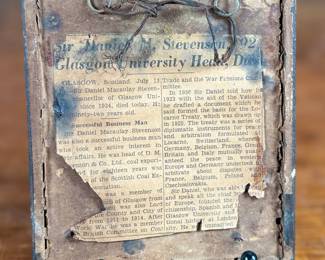 Sir Daniel M. Stevenson, 92
Glasgow University Head, Dies
GLASGOW, Scotland, July 13
Sir Daniel Macaulay Stevenson
of Glasgow Uni-
since 1934, died today. H
ninety-two years old.
Successful Business Man
Sir Daniel Macaulay Stevenson
was also a successful business man
took an active interest in
affairs. He was head of D. M.
& Co. Ltd., coal export-
for eighteen years was
of the Scottish Coal Ex-
was a member of
of Glasgow from
was also Lord
County and City of
from 1911 to 1914. After
World War he was a member
British Committee on
Trade and the War Finance Com-
mittee.
In 1936 Sir Daniel said how
1923 with the aid of the
he drafted a document which he
said formed the basis for the Lo-
carno Treaty, which was drawn up
in 1925. The treaty was a series of
diplomatic instruments for peace
and arbitration formulated in
Locarno, Switzerland, wherein
Germany, Belgium, France, Great
Britain and Italy mutually guar-
anteed the peace in western
Europe and Germany undertook to
arbitrate about disputes with
France, Belgium, Poland and
Czechoslovakia.
Sir Daniel, who was also
said to be always the chief
of Europe, founded the
citizenship, Spanish and
Glasgow University and
history at London
He was unmarried